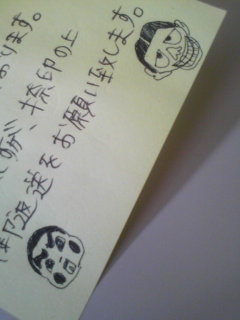 おります。
すが、捺印の上
返送をお願い致します。